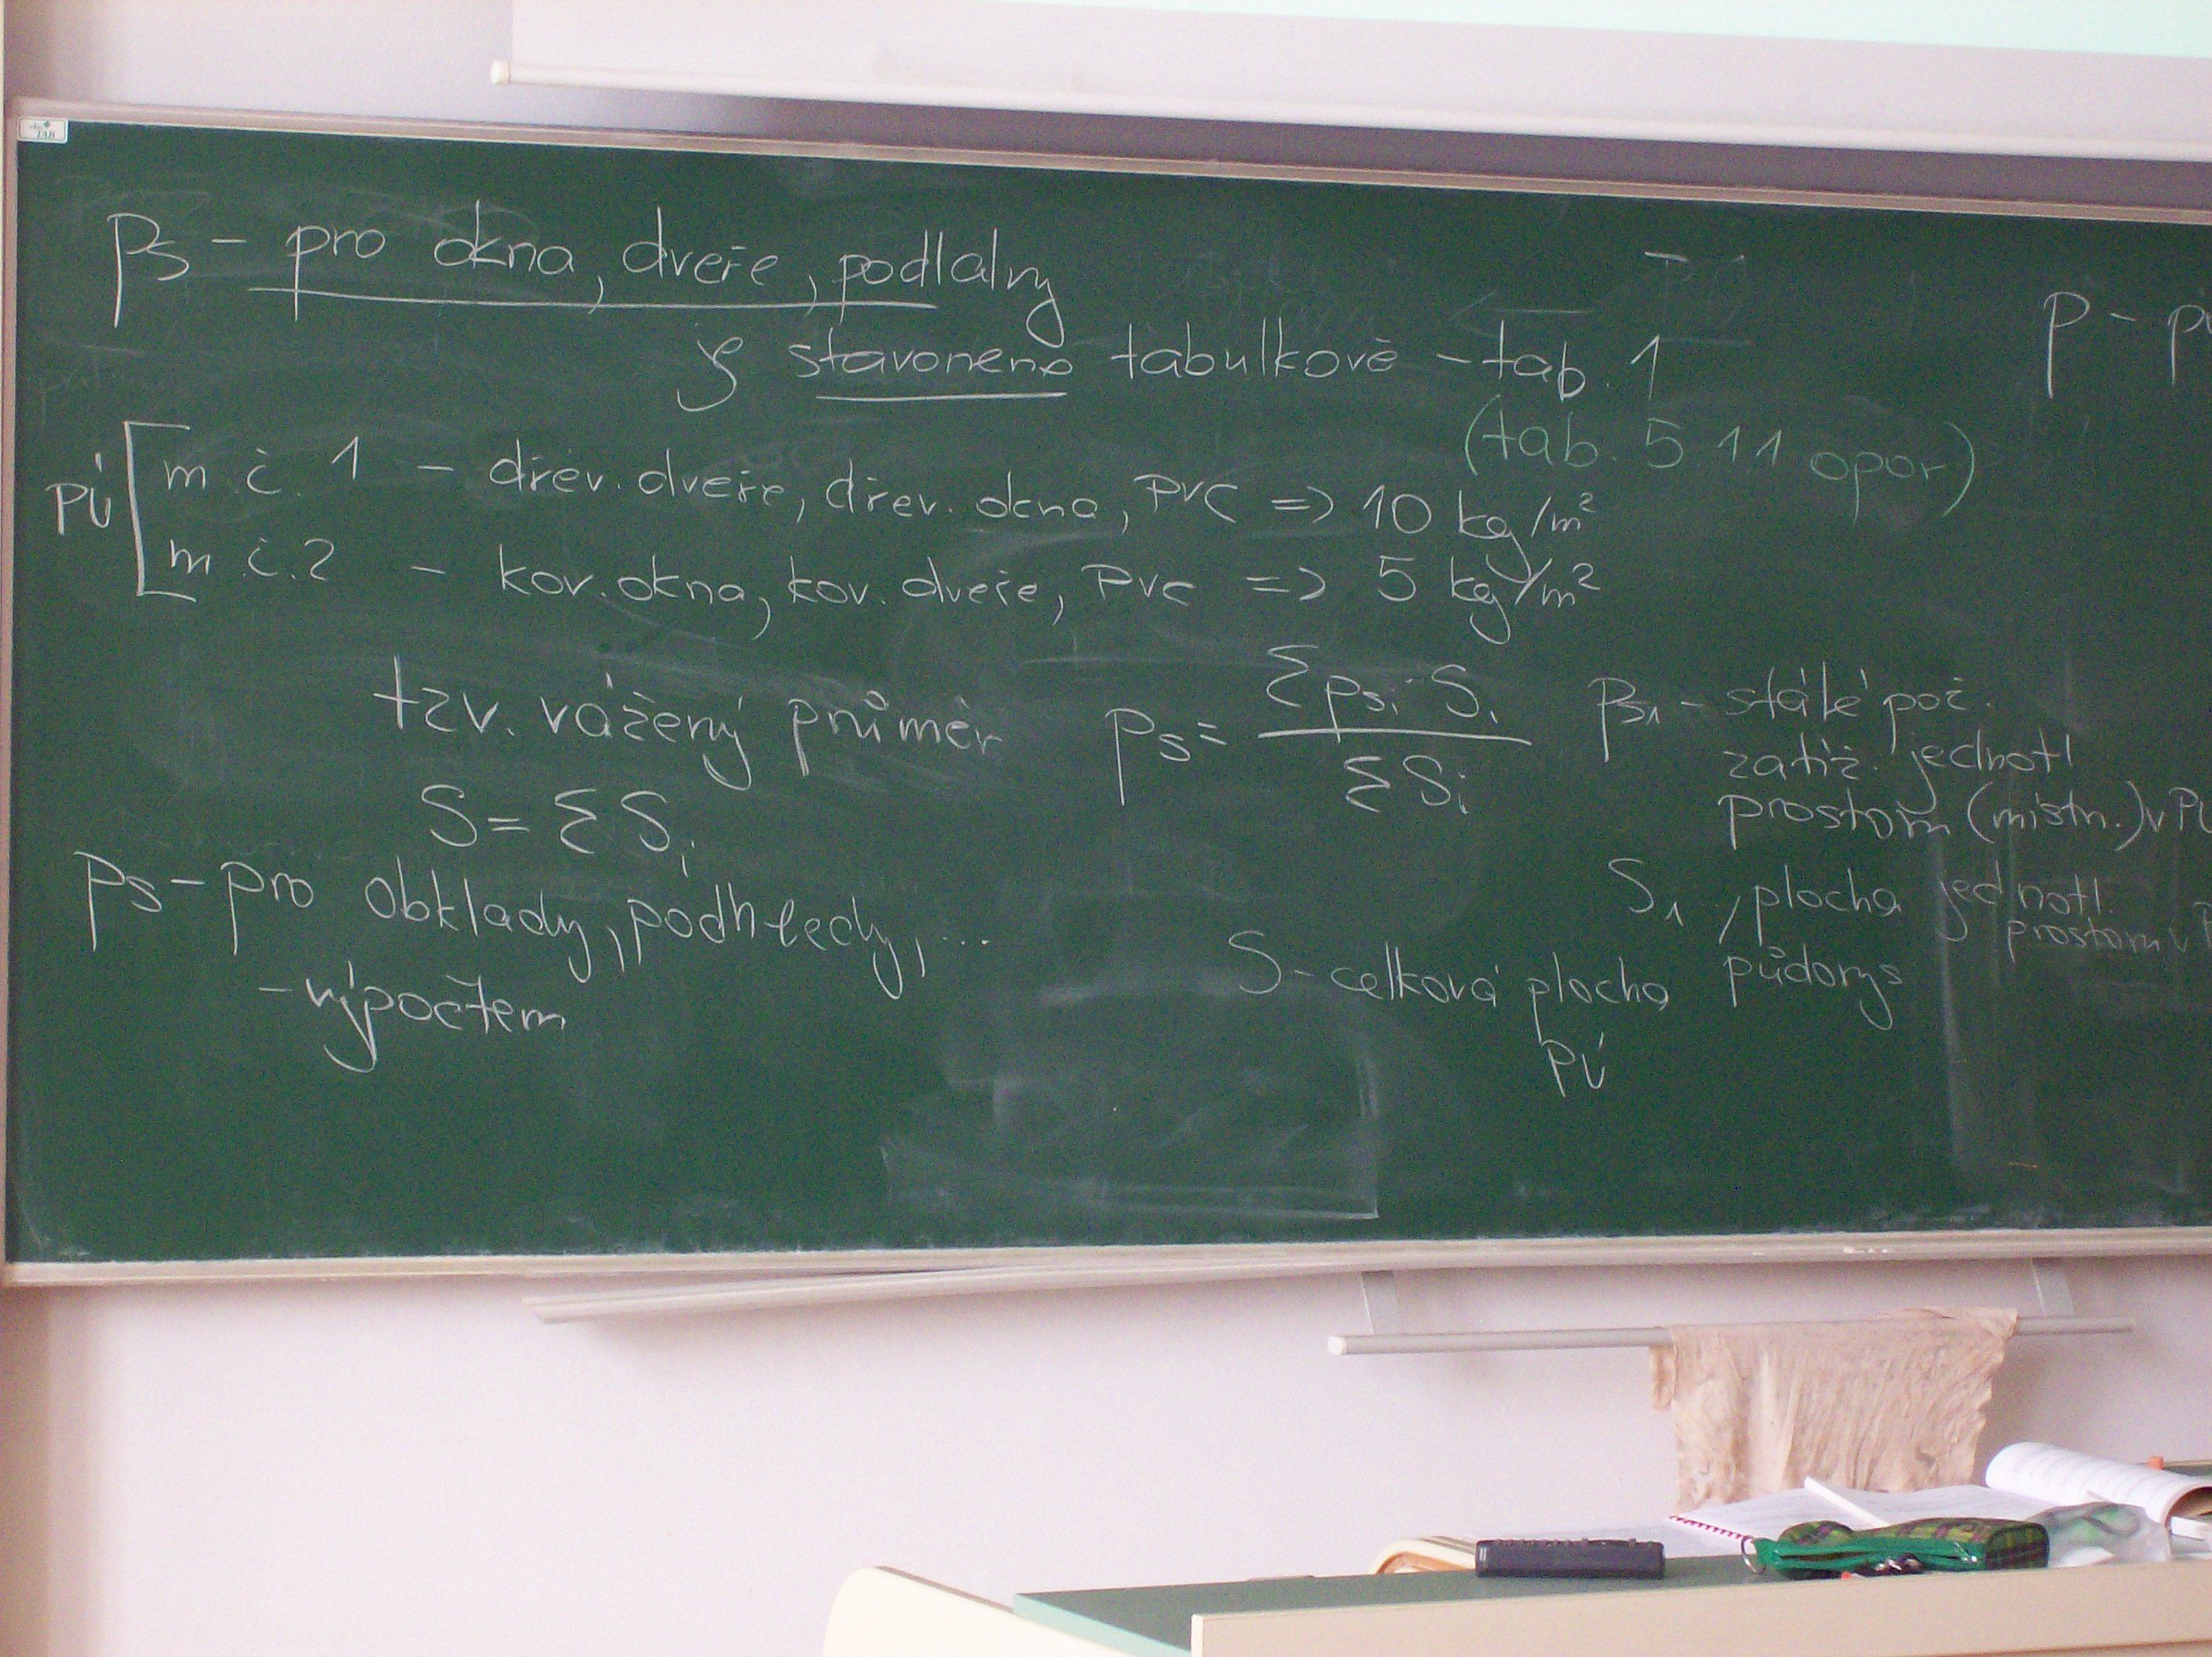 ps - pro okna, dveře, podlahy
stavoneno tabulkově - tab. 1
(tab. 5.11 opor.)
PÚ
m.č. 1 - dřev. dveře, dřev. okna, PVC => 10 kg/m²
m.č. 2 - kov. okna, kov. dveře, PVC => 5 kg/m²
tzv. vážený průměr
ps = Σ psi · Si / Σ Si
psi - stálé pož.
zatíž. jednotl
prostorů (místn.) v PÚ
S = Σ Si
Si plocha jednotl.
prostorů v
půdorys
ps - pro obklady, podhledy, ...
- výpočtem
S - celková plocha
PÚ
p -